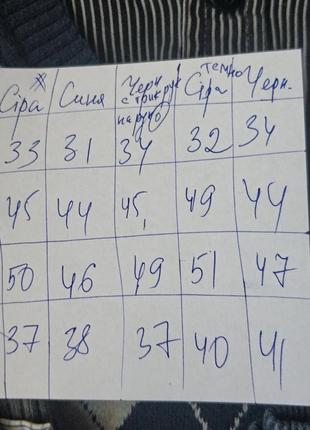 Сіра Синя Черн з трик рук на руко темно Сіра Черн.
33 31 34 32 34
45 44 45, 49 44
50 46 49 51 47
37 38 37 40 41